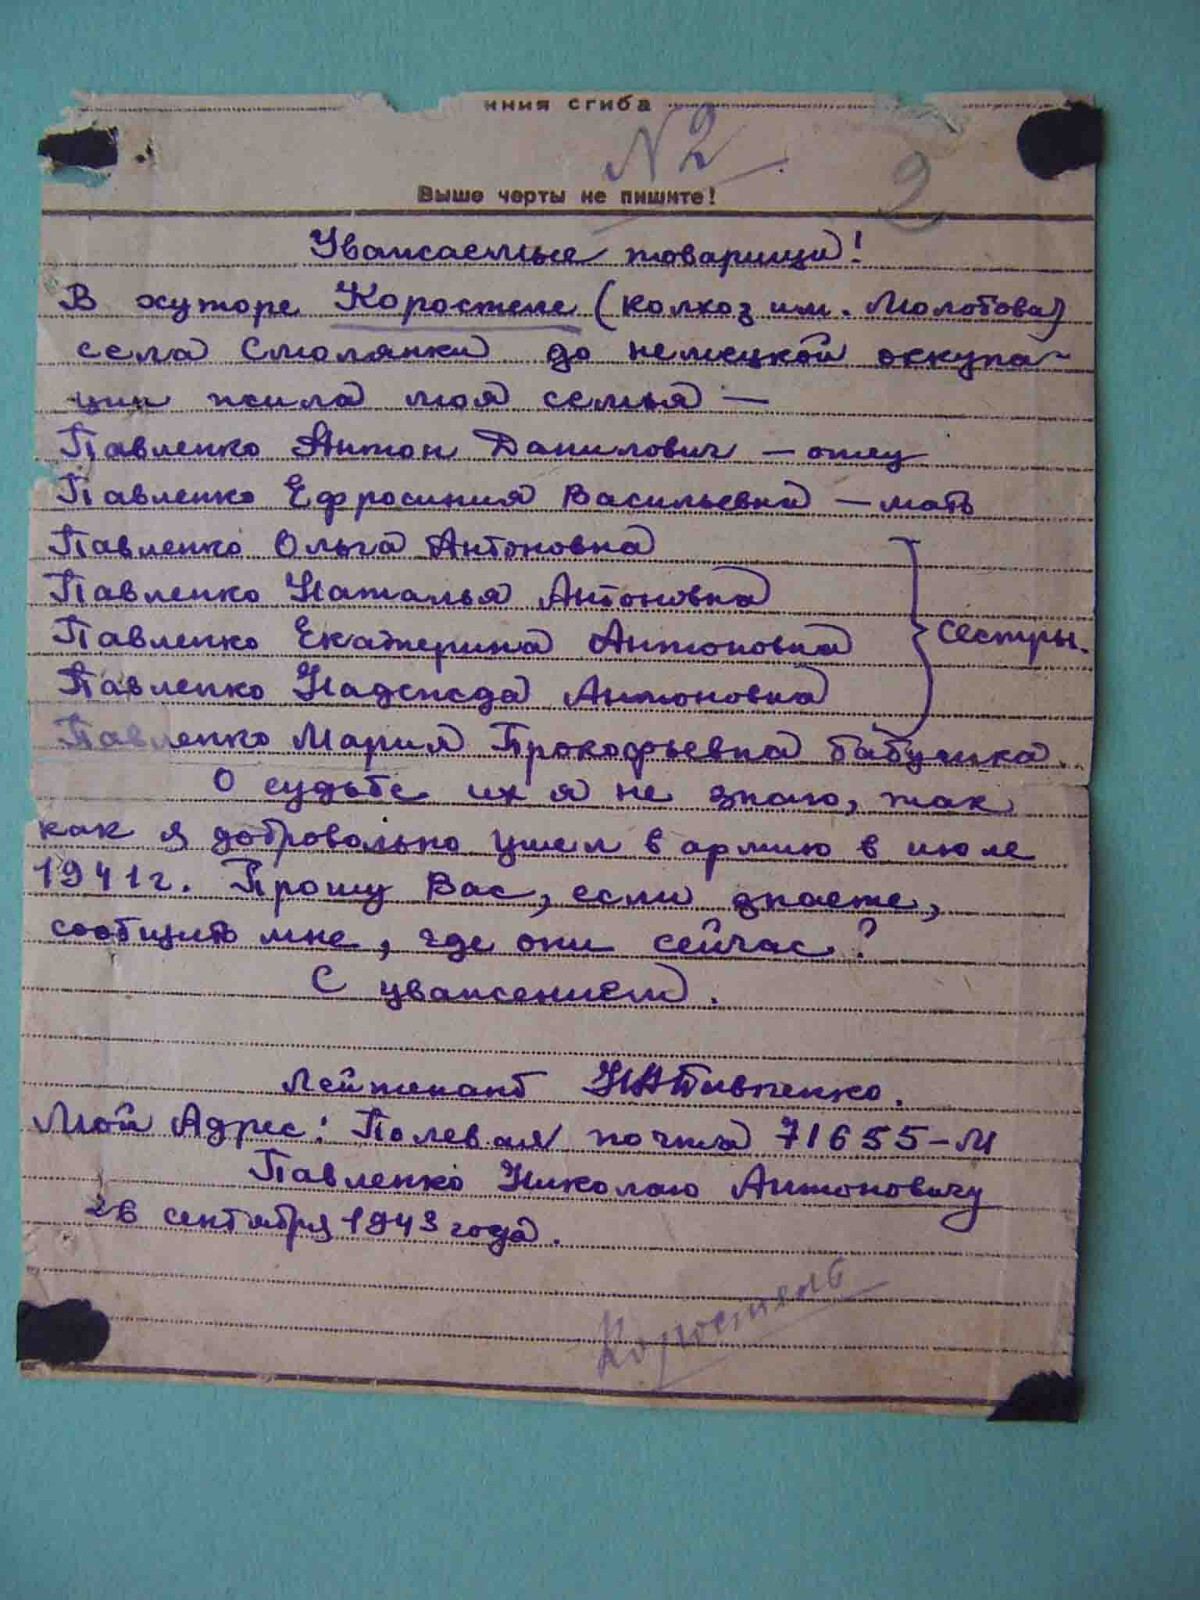 иния сгиба
N 2
2
Выше черты не пишите!
Уважаемые товарищи!
В хуторе Коростеле (колхоз им. Молотова)
села Смолянки до немецкой оккупа-
ции жила моя семья —
Павленко Антон Данилович — отец
Павленко Ефросиния Васильевна — мать
Павленко Ольга Антоновна
Павленко Наталья Антоновна
Павленко Екатерина Антоновна
сестры.
Павленко Надежда Антоновна
Павленко Мария Прокофьевна бабушка.
О судьбе их я не знаю, так
как я добровольно ушел в армию в июле
1941 г. Прошу Вас, если знаете,
сообщить мне, где они сейчас?
С уважением.
Лейтенант НАПавленко.
Мой Адрес: Полевая почта 71655-М
Павленко Николаю Антоновичу
26 сентября 1943 года.
Коростель